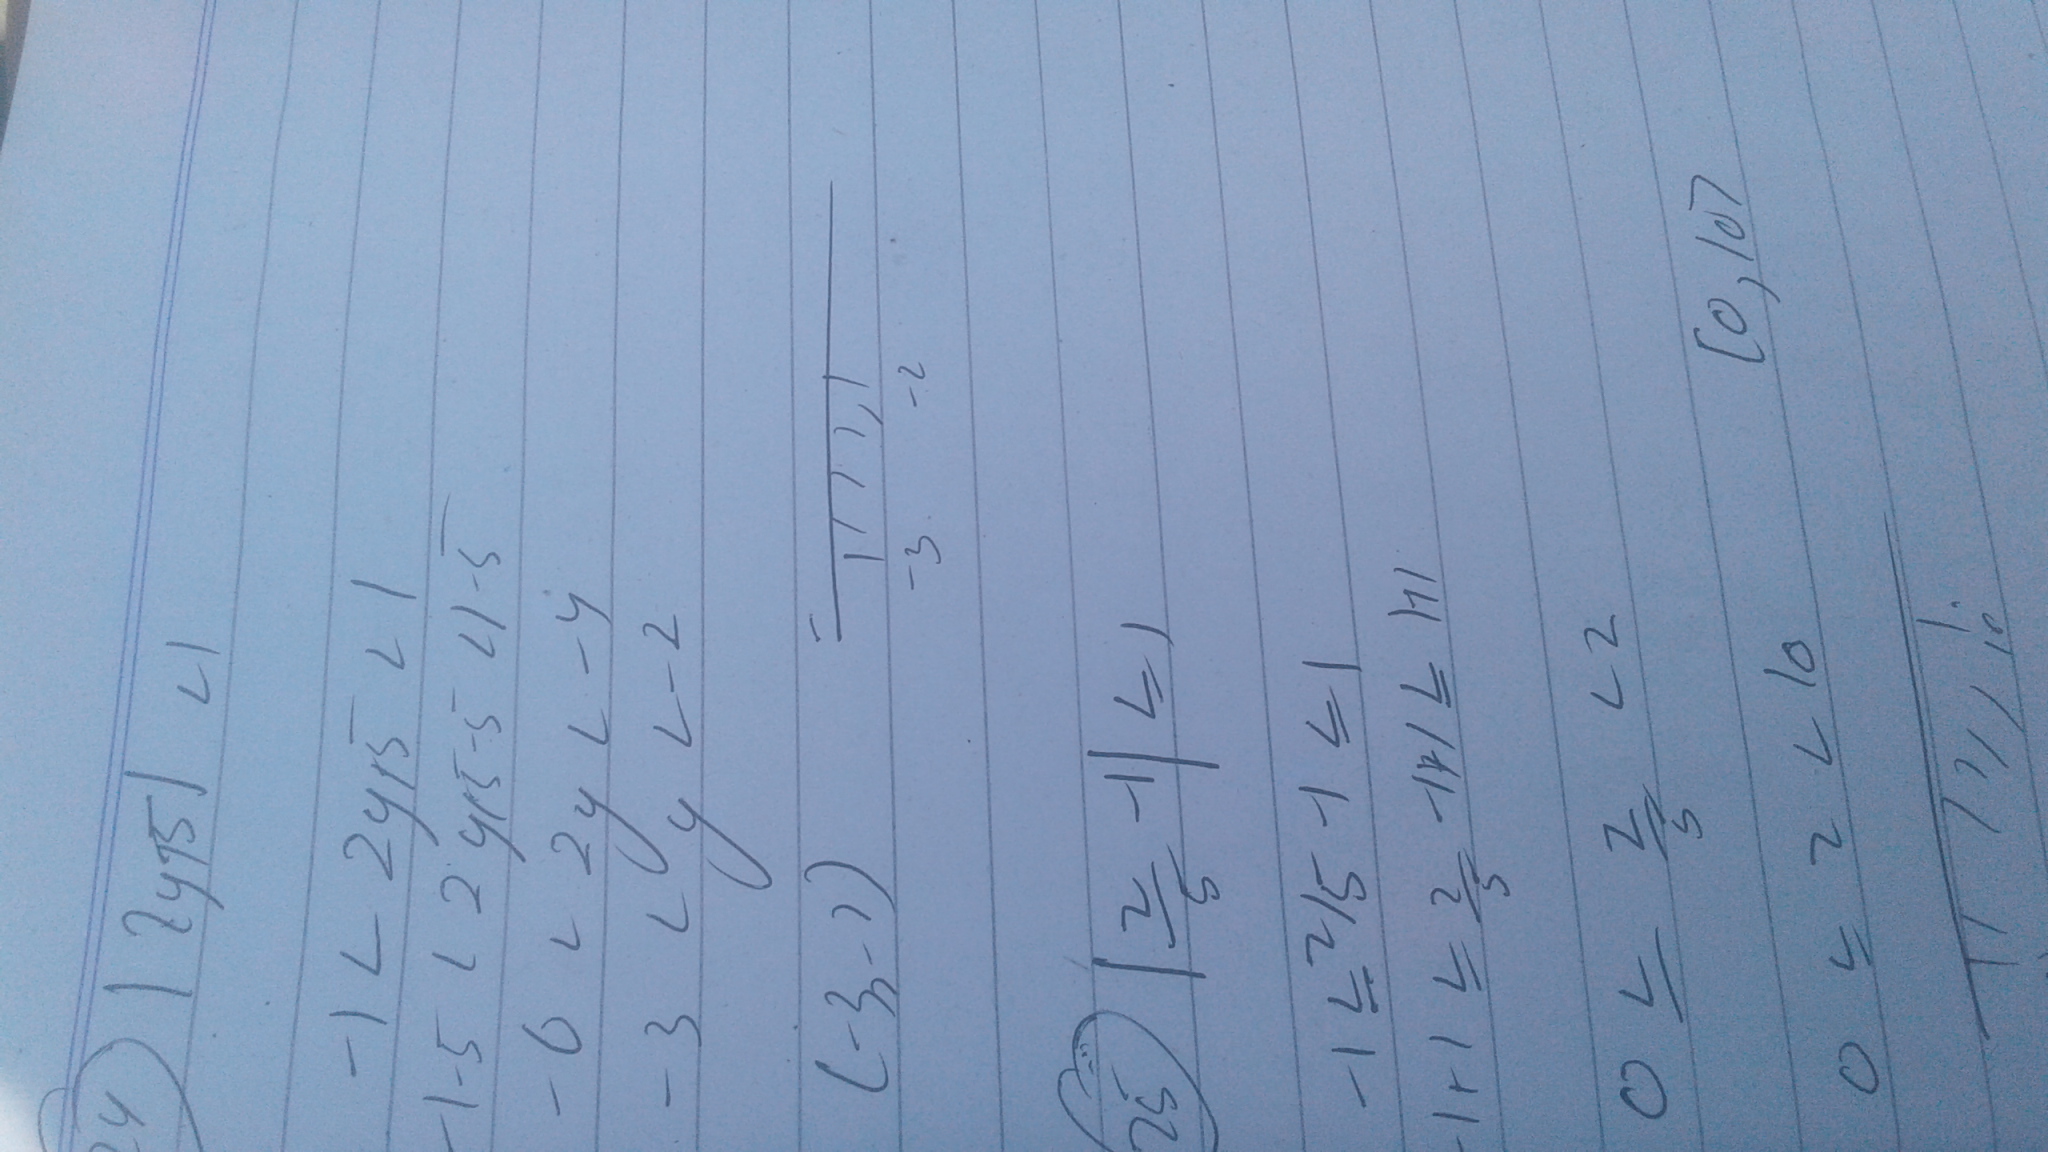 24 |2y+5| < 1
-1 < 2y+5 < 1
-1-5 < 2y+5-5 < 1-5
-6 < 2y < -4
-3 < y < -2
(-3,-2)
-3 -2
25 |z/5 -1| ≤ 1
-1 ≤ z/5 -1 ≤ 1
-1+1 ≤ z/5 -1+1 ≤ 1+1
0 ≤ z/5 < 2
[0,10]
0 ≤ z < 10
10